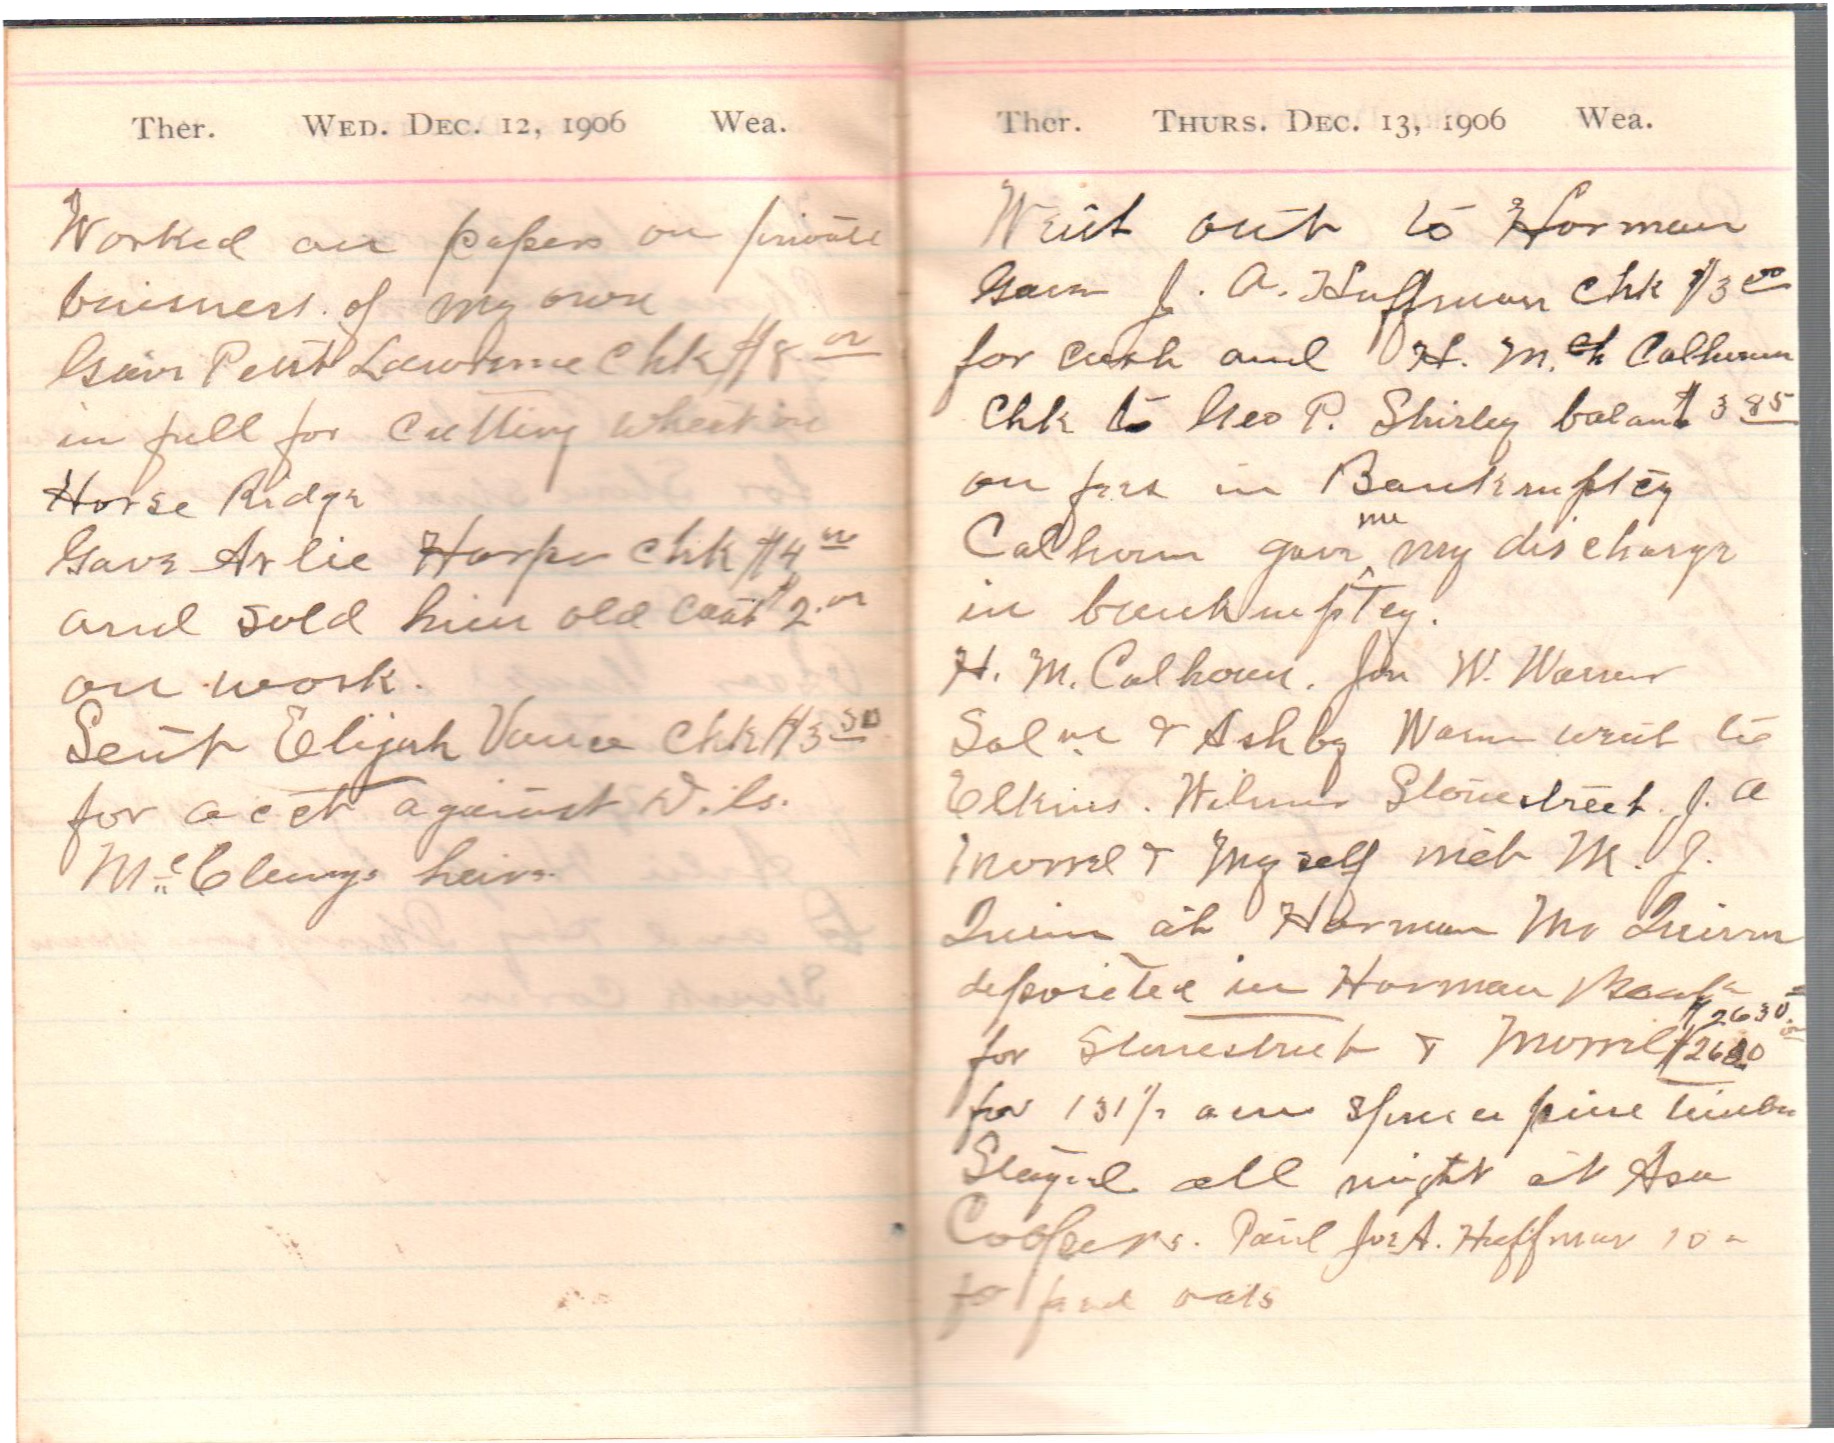 Ther. WED. DEC. 12, 1906 Wea.
Worked on papers on private
buisness. of my own
Gave Lawrence Chk $8 00
in full for cutting wheat on
Horse Ridge
Gave Arlie Harper Chk $4 00
and sold him old coat $2.00
on work.
Sent Elijah Vance Chk $3 50
for acct against Wils.
Mc Clungs heirs.
Ther. THURS. DEC. 13, 1906 Wea.
Went out to Harman
Gave J. A. Huffman Chk $3 00
for cash and H. M. Calhoun
Chk to Geo P. Shirley balant $3 85
on fees in Bankruptcy
Calhoun gave me my discharge
in bankruptcy.
H. M. Calhoun. Jon W. Warner
& Ashby Warner went to
Elkins. Wilmer Stonestreet. J. A
Morrel & Myself met M. J.
Quinn at Harman Mr Quinn
deposited in Harman Bank
$2630
for Stonestreet & Morrel $2680
for 131½ acre spruce pine timber
Stayed all night at Asa
Coopers. Paid Jos A. Huffman 10
for feed oats